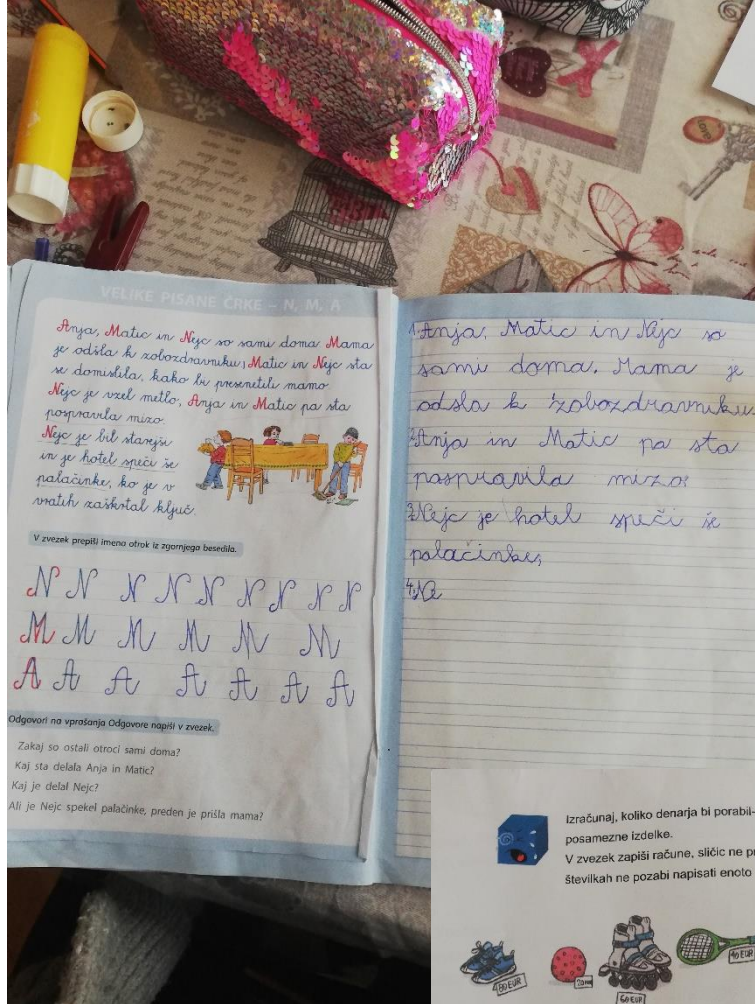 VELIKE PISANE ČRKE – N, M, A
Anja, Matic in Nejc so sami doma. Mama
je odšla k zobozdravniku. Matic in Nejc sta
se domislila, kako bi presenetili mamo.
Nejc je vzel metlo, Anja in Matic pa sta
pospravila mizo.
Nejc je bil starejši
in je hotel speči še
palačinke, ko je v
vratih zaškrtal ključ.
V zvezek prepiši imena otrok iz zgornjega besedila.
N N N N N N N N N
M M M M M M
A A A A A A A
Odgovori na vprašanja Odgovore napiši v zvezek.
Zakaj so ostali otroci sami doma?
Kaj sta delala Anja in Matic?
Kaj je delal Nejc?
Ali je Nejc spekel palačinke, preden je prišla mama?
1. Anja, Matic in Nejc so
sami doma. Mama je
odšla k zobozdravniku.
2. Anja in Matic pa sta
paspravila mizo.
3. Nejc je hotel speči še
palačinke.
4. Ne
Izračunaj, koliko denarja bi porabil-
posamezne izdelke.
V zvezek zapiši račune, sličic ne pr
številkah ne pozabi napisati enoto
480 EUR
60 EUR
90 EUR